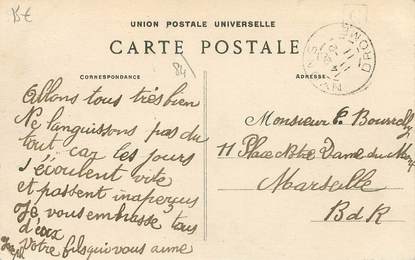 15€
UNION POSTALE UNIVERSELLE
CARTE POSTALE
CORRESPONDANCE
84
ADRESSE
DROME
Allons tous très bien
Ne languissons pas du
tout car les jours
s'écoulent vite
et passent inaperçus
Je vous embrasse tous
d'eux
Votre fils qui vous aime
Joseph
Monsieur P. Bourrelly
11 Place Notre Dame du Mont
Marseille
BdR